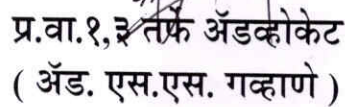 प्र.वा.१,३ तर्फे ॲडव्होकेट
( ॲड. एस.एस. गव्हाणे )